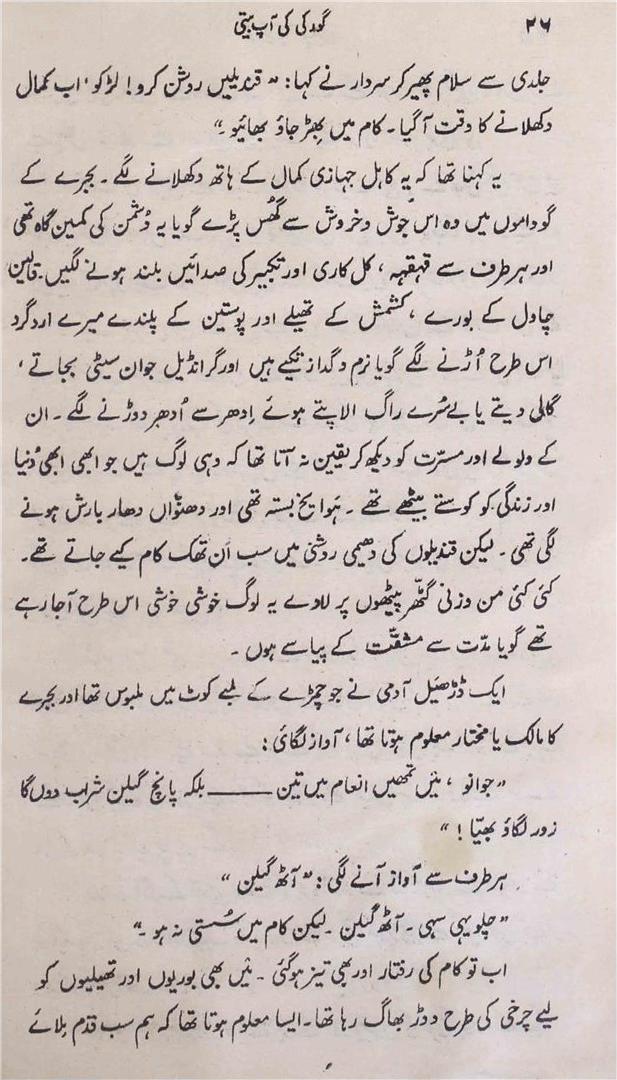 ۲۶ گورکی کی آپ بیتی
جلدی سے سلام پھیر کر سردار نے کہا: "قندیلیں روشن کرو! لڑکو' اب کمال
دکھلانے کا وقت آگیا۔ کام میں بِھڑ جاؤ بھائیو۔"
یہ کہنا تھا کہ یہ کاہل جہازی کمال کے ہاتھ دکھلانے لگے۔ بجرے کے
گوداموں میں وہ اس جوش و خروش سے گھُس پڑے گویا یہ دُشمن کی کمین گاہ تھی
اور ہر طرف سے قہقہہ، کل کاری اور تکبیر کی صدائیں بلند ہونے لگیں۔ قالین
چاول کے بورے، کشمش کے تھیلے اور پوستین کے پلندے میرے اردگرد
اس طرح اُڑنے لگے گویا نرم و گداز تکیے ہیں اور گرانڈیل جوان سیٹی بجاتے،
گالی دیتے یا بےسُرے راگ الاپتے ہوئے اِدھر سے اُدھر دوڑنے لگے۔ ان
کے ولولے اور مسرّت کو دیکھ کر یقین نہ آتا تھا کہ وہی لوگ ہیں جو ابھی ابھی دُنیا
اور زندگی کو کوستے بیٹھے تھے۔ ہَوا یخ بستہ تھی اور دھنواں دھار بارش ہونے
لگی تھی۔ لیکن قندیلوں کی دھیمی روشنی میں سب اَن تھک کام کیے جاتے تھے۔
کئی کئی من وزنی گٹھّر پیٹھوں پر لادے یہ لوگ خوشی خوشی اس طرح آجا رہے
تھے گویا مدّت سے مشقّت کے پیاسے ہوں۔
ایک ڈڑھیَل آدمی نے جو چمڑے کے لمبے کوٹ میں ملبوس تھا اور بجرے
کا مالک یا مختار معلوم ہوتا تھا، آواز لگائی:
"جوانو، مَیں تمھیں انعام میں تین ——— بلکہ پانچ گیلن شراب دوں گا
زور لگاؤ بھیّا!"
ہر طرف سے آواز آنے لگی: "آٹھ گیلن"
"چلو یہی سہی۔ آٹھ گیلن۔ لیکن کام میں سُستی نہ ہو۔"
اب تو کام کی رفتار اور بھی تیز ہوگئی۔ مَیں بھی بوریوں اور تھیلیوں کو
لیے چرخی کی طرح دوڑ بھاگ رہا تھا۔ ایسا معلوم ہوتا تھا کہ ہم سب قدم ہِلائے